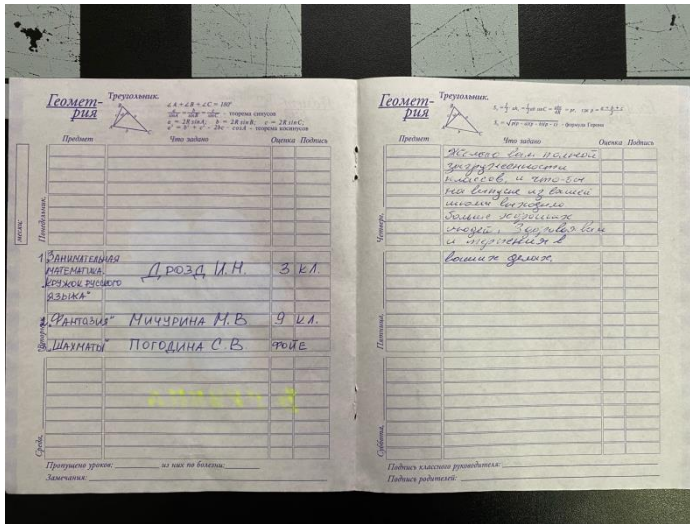 Геомет-
рия
Треугольник.
∠A + ∠B + ∠C = 180°
- теорема синусов
a = 2R sinA; b = 2R sinB; c = 2R sinC;
a² = b² + c² - 2bc · cosA - теорема косинусов
Предмет Что задано Оценка Подпись
месяц
Понедельник,
1 Занимательная
математика.
"Кружок русского
языка" Дрозд И.Н. 3 кл.
"Фантазия" Мичурина М.В 9 кл.
"Шахматы" Погодина С.В фойе
Вторник,
Среда,
Пропущено уроков: из них по болезни:
Замечания:
Геомет-
рия
Треугольник.
- формула Герона
Предмет Что задано Оценка Подпись
Желаю вам полной
загруженности
классов, и что-бы
на выпуске из вашей
школы выходило
больше хороших
людей. Здоровья вам
и терпения в
ваших делах.
Четверг,
Пятница,
Суббота,
Подпись классного руководителя:
Подпись родителей: